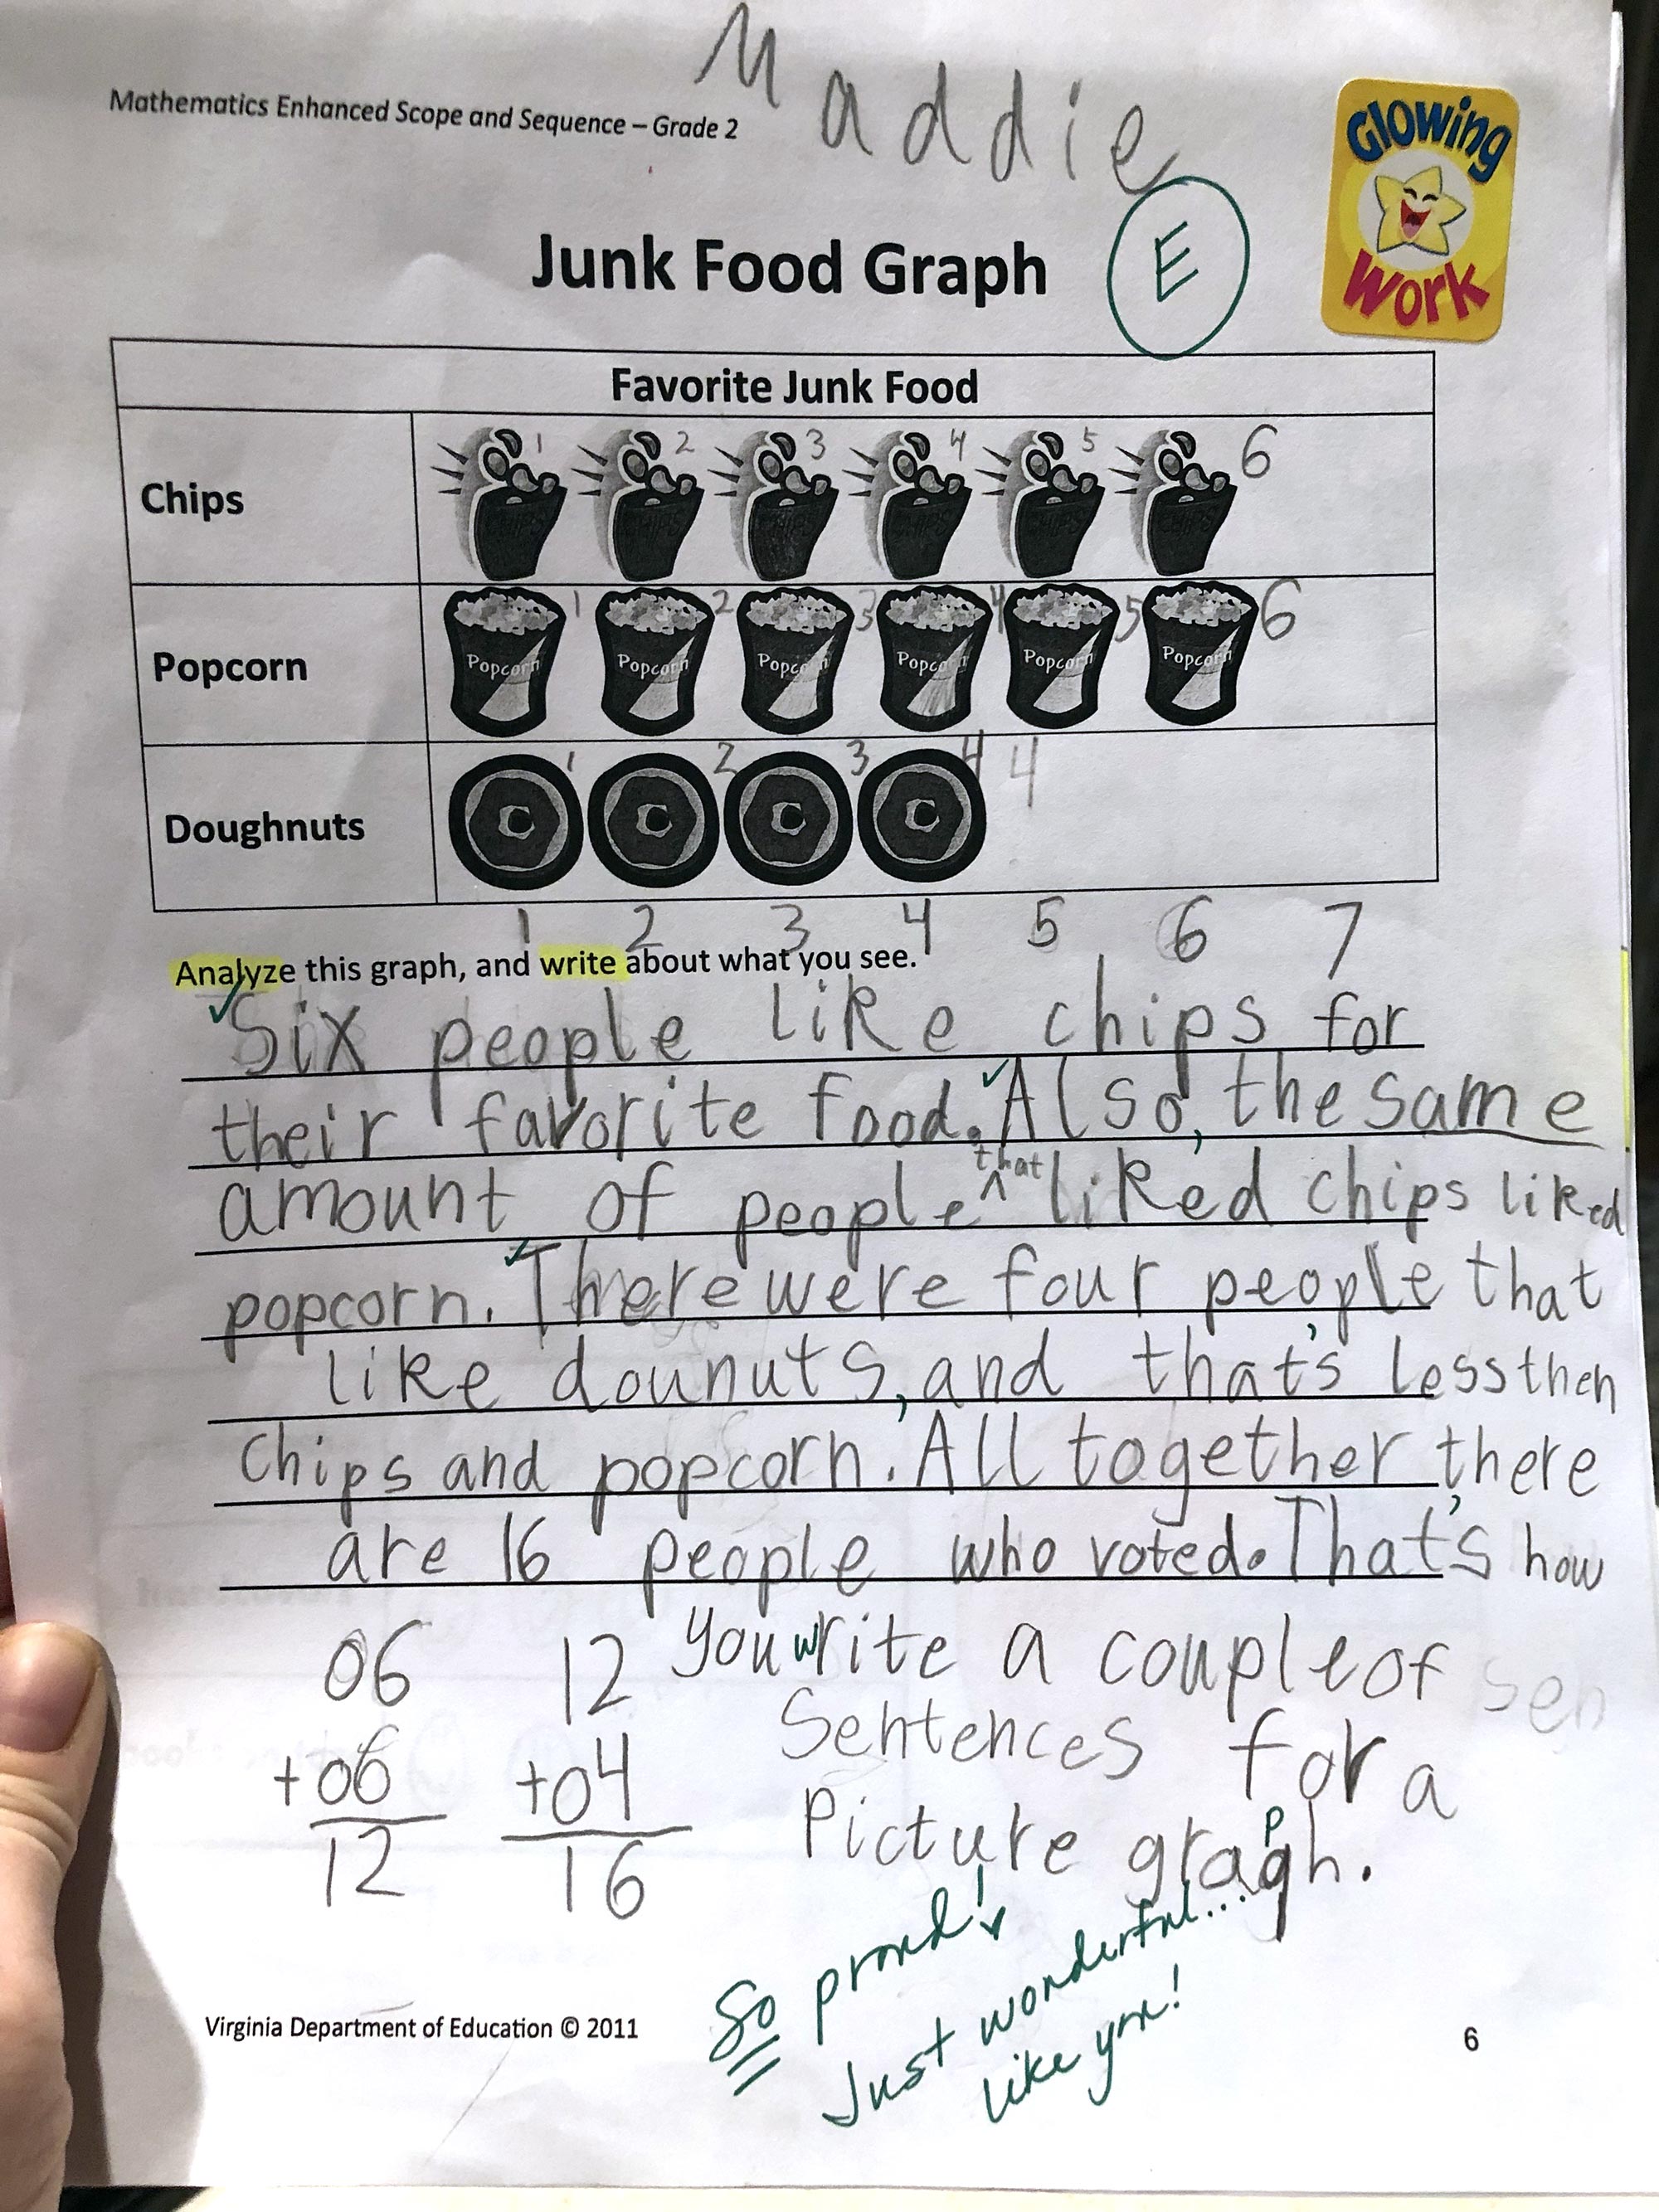 Maddie
Mathematics Enhanced Scope and Sequence – Grade 2
Glowing
Work
Junk Food Graph
E
Favorite Junk Food
Chips
1 2 3 4 5 6
Popcorn
1 2 3 4 5 6
Popcorn Popcorn Popcorn Popcorn Popcorn Popcorn
Doughnuts
1 2 3 4 4
1 2 3 4 5 6 7
Analyze this graph, and write about what you see.
Six people like chips for
their favorite food. Also, the same
amount of people that liked chips liked
popcorn. There were four people that
like dounuts, and that's less then
chips and popcorn. All together there
are 16 people who voted. That's how
you write a couple of sen
sentences for a
picture graph.
06 12
+06 +04
12 16
So proud!
Just wonderful...
like you!
Virginia Department of Education © 2011
6